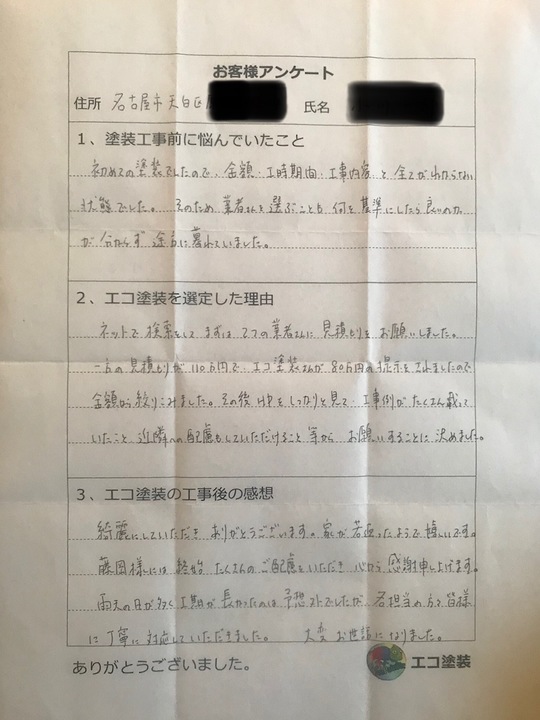 お客様アンケート
住所 名古屋市天白区 氏名
1、塗装工事前に悩んでいたこと
初めての塗装でしたので、金額・工時期間・工事内容 と 全てがわからない
状態でした。 そのため 業者さんを 選ぶことも 何を 基準にしたら 良いのか
が 分からず 途方に暮れていました。
2、エコ塗装を選定した理由
ネットで 検索をして まずは 2つの業者さんに 見積もりを お願いしました。
一方の見積もりが 110万円で、エコ塗装さんが 80万円の 提示を されましたので
金額から 絞りこみました。その後 HPを しっかりと見て・工事例が たくさん載って
いたこと 近隣への配慮もしていただけること 等から お願いすることに 決めました。
3、エコ塗装の工事後の感想
綺麗にしていただき ありがとうございます。家が 若返ったようで 嬉しいです。
藤岡様には 終始 たくさんの ご配慮をいただき 心から 感謝申し上げます。
雨天の日が多く 工期が 長かったのは 予想外でしたが、各担当の方々 皆様
に 丁寧に 対応していただきました。 大変 お世話になりました。
ありがとうございました。 エコ塗装